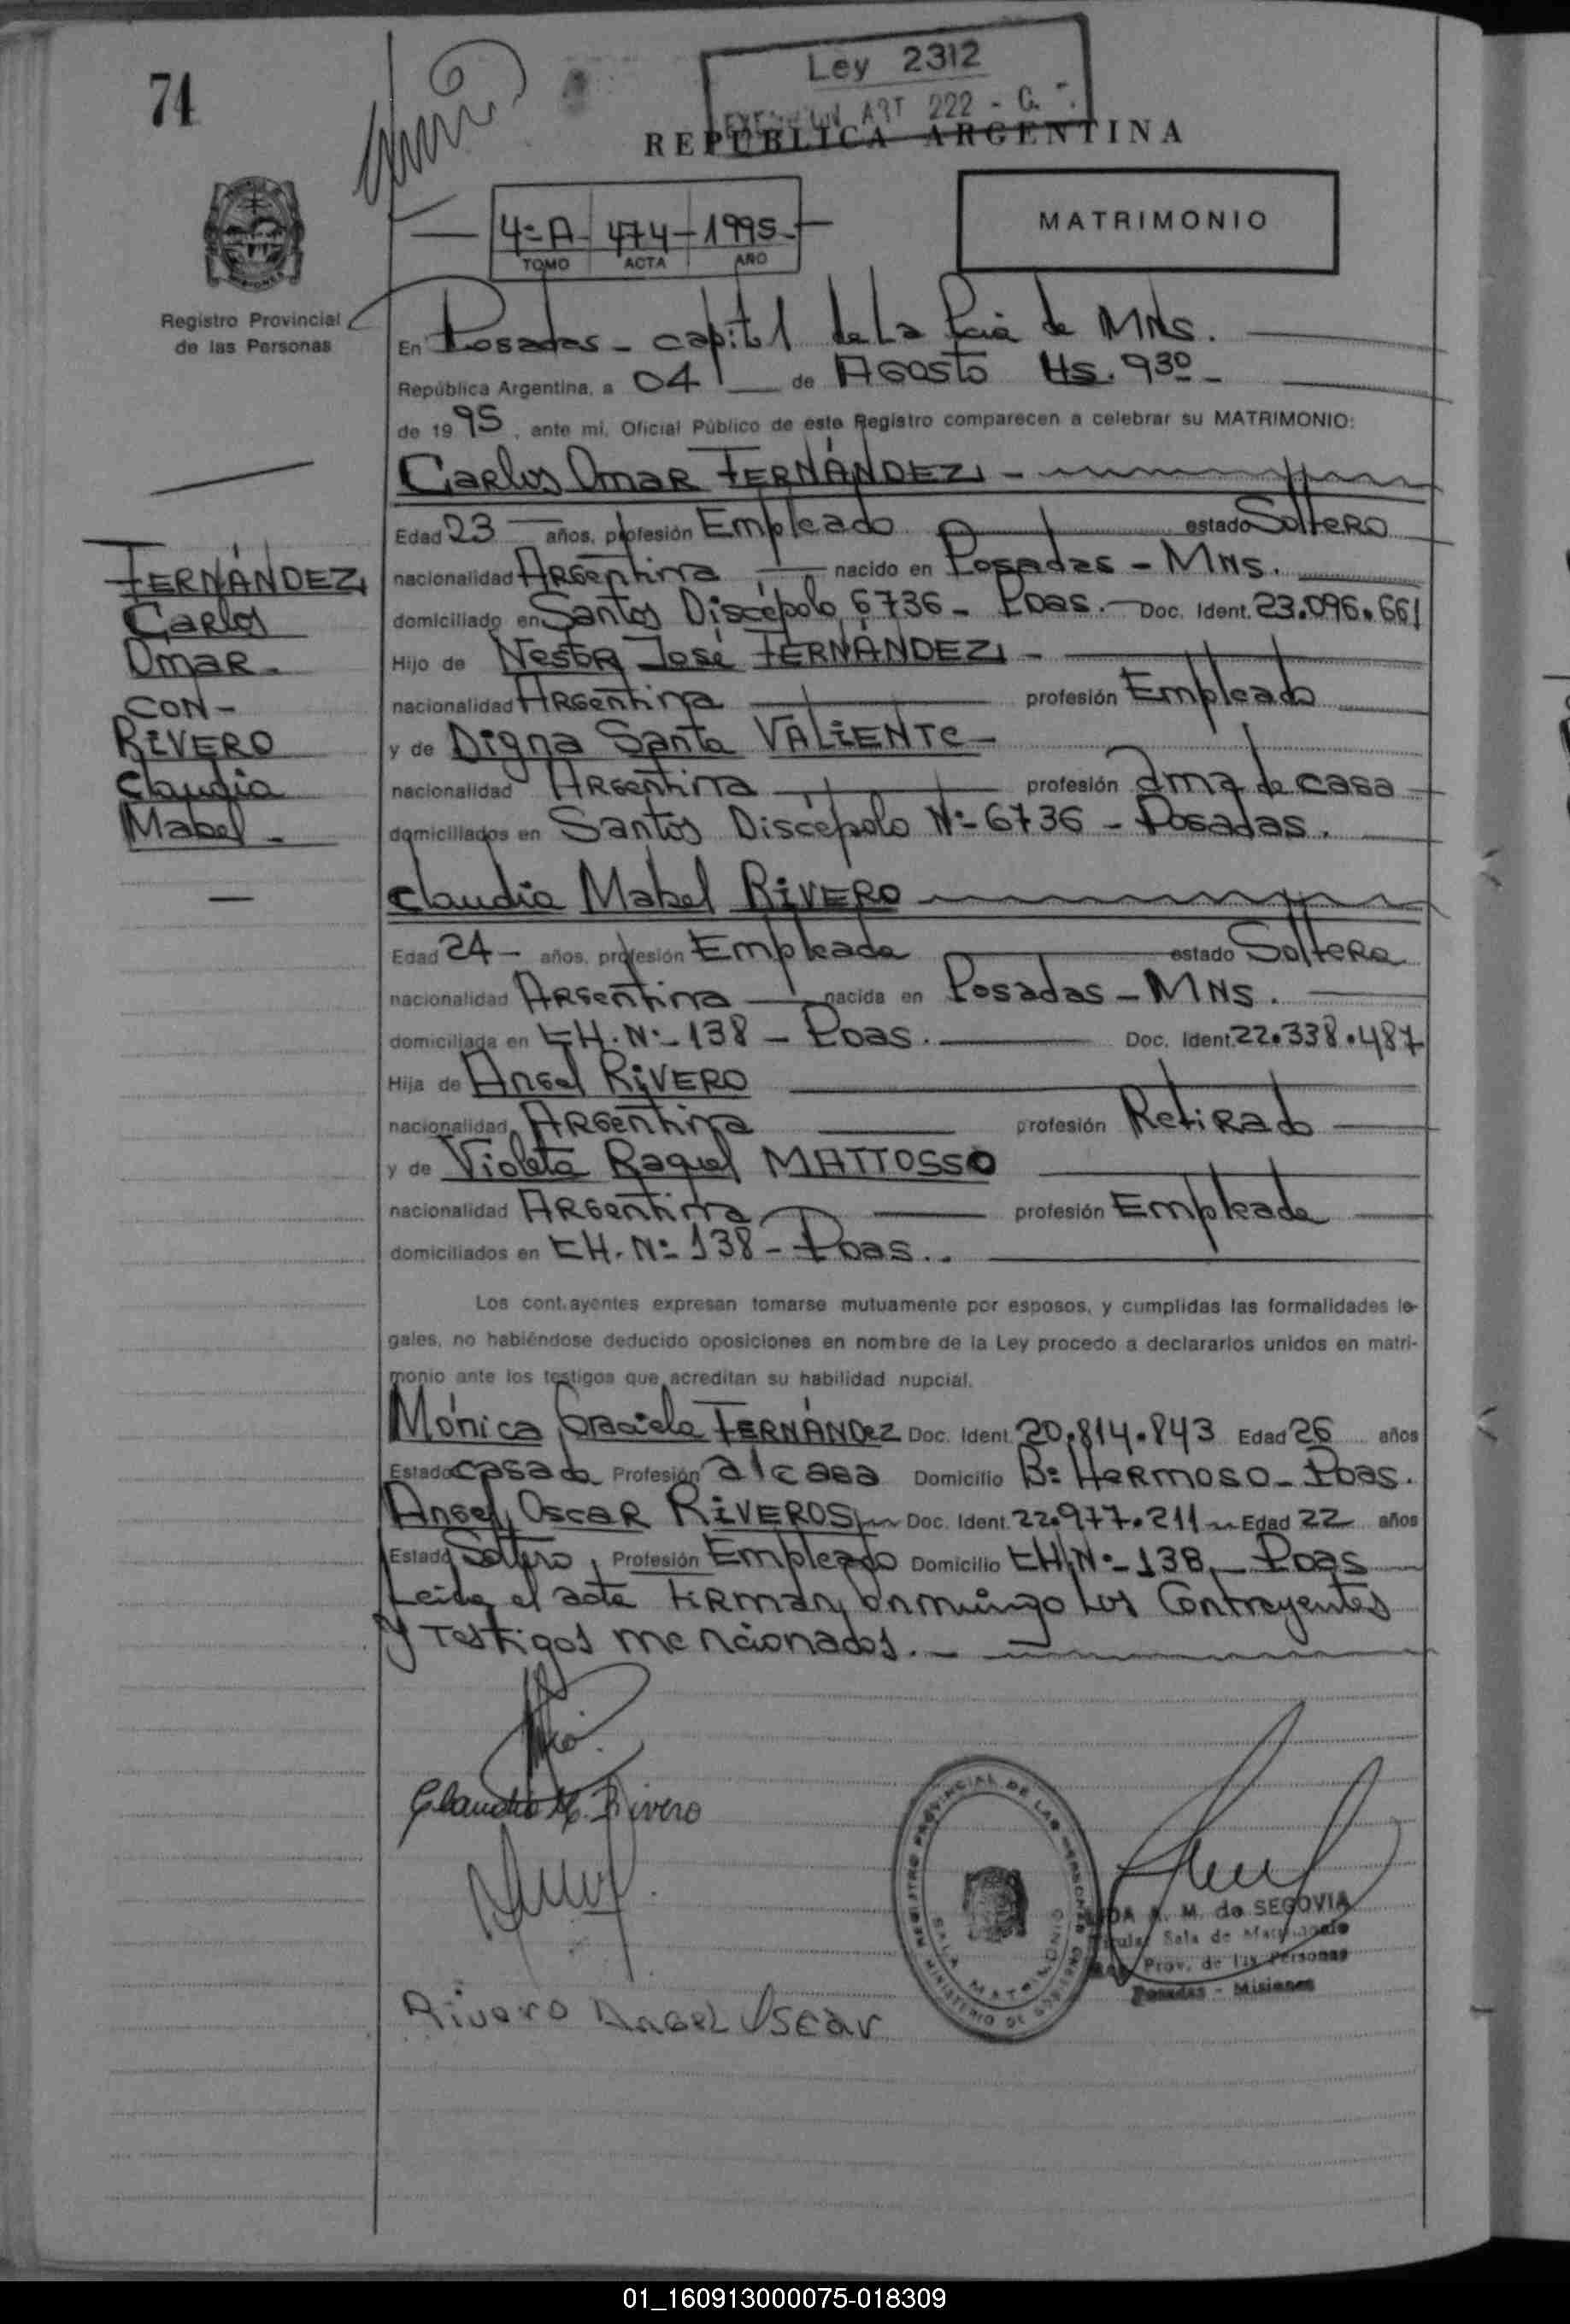 74
Ley 2312
ART 222 - C.
REPUBLICA ARGENTINA
4º A - 474 - 1995 -
TOMO ACTA AÑO
MATRIMONIO
Registro Provincial
de las Personas
En Posadas - capital de La Pcia de MNS.
República Argentina, a 04 de AGOSTO Hs. 930 -
de 1995, ante mi, Oficial Público de este Registro comparecen a celebrar su MATRIMONIO:
Carlos Omar FERNÁNDEZ -
Edad 23 años, profesión Empleado estado Soltero
nacionalidad Argentina nacido en Posadas - MNS.
domiciliado en Santos Discépolo 6736 - Pdas. Doc. Ident. 23.096.661
Hijo de Nestor José FERNÁNDEZ -
nacionalidad Argentina profesión Empleado
y de Digna Santa VALIENTE -
nacionalidad Argentina profesión ama de casa
domiciliados en Santos Discépolo Nº 6736 - Posadas.
FERNÁNDEZ
Carlos
Omar -
CON -
RIVERO
Claudia
Mabel -
Claudia Mabel RIVERO
Edad 24 - años, profesión Empleada estado Soltera
nacionalidad Argentina nacida en Posadas - MNS.
domiciliada en CH. Nº 138 - Pdas. Doc. Ident. 22.338.487
Hija de Angel RIVERO
nacionalidad Argentina profesión Retirado
y de Violeta Raquel MATTOSSO
nacionalidad Argentina profesión Empleada
domiciliados en CH. Nº 138 - Pdas..
Los contrayentes expresan tomarse mutuamente por esposos, y cumplidas las formalidades le-
gales, no habiéndose deducido oposiciones en nombre de la Ley procedo a declararlos unidos en matri-
monio ante los testigos que acreditan su habilidad nupcial.
Mónica Graciela FERNÁNDEZ Doc. Ident. 20.814.843 Edad 26 años
Estado casada Profesión a/casa Domicilio Bº HERMOSO - Pdas.
Angel Oscar RIVEROS Doc. Ident. 22.977.211 Edad 22 años
Estado Soltero, Profesión Empleado Domicilio CH. Nº 138 - Pdas
Leida el acta firman conmingo Los Contrayentes
Y Testigos mencionados. -
Claudia M. Rivero
Rivero Angel Oscar
REGISTRO PROVINCIAL DE LAS PERSONAS
MINISTERIO DE GOBIERNO
SALA MATRIMONIO
A. M. de SEGOVIA
Titular Sala de Matrimonio
Prov. de las Personas
Posadas - Misiones
01_160913000075-018309